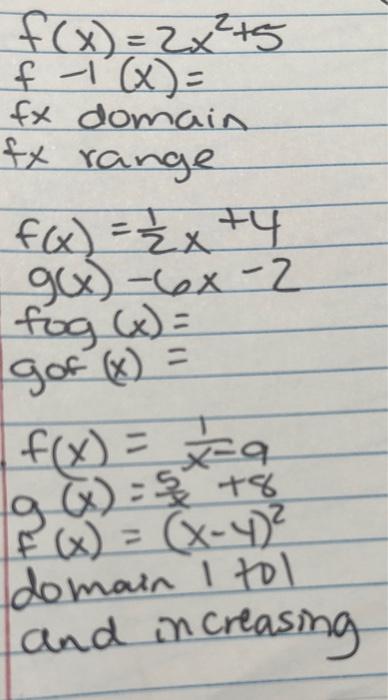 f(x) = 2x²+5
f -1 (x) =
fx domain
fx range
f(x) = 1/2 x +4
g(x) -6x -2
fog (x) =
gof (x) =
f(x) = 1/x-9
g (x) = 5/x +8
f (x) = (x-4)²
domain 1 to 1
and increasing